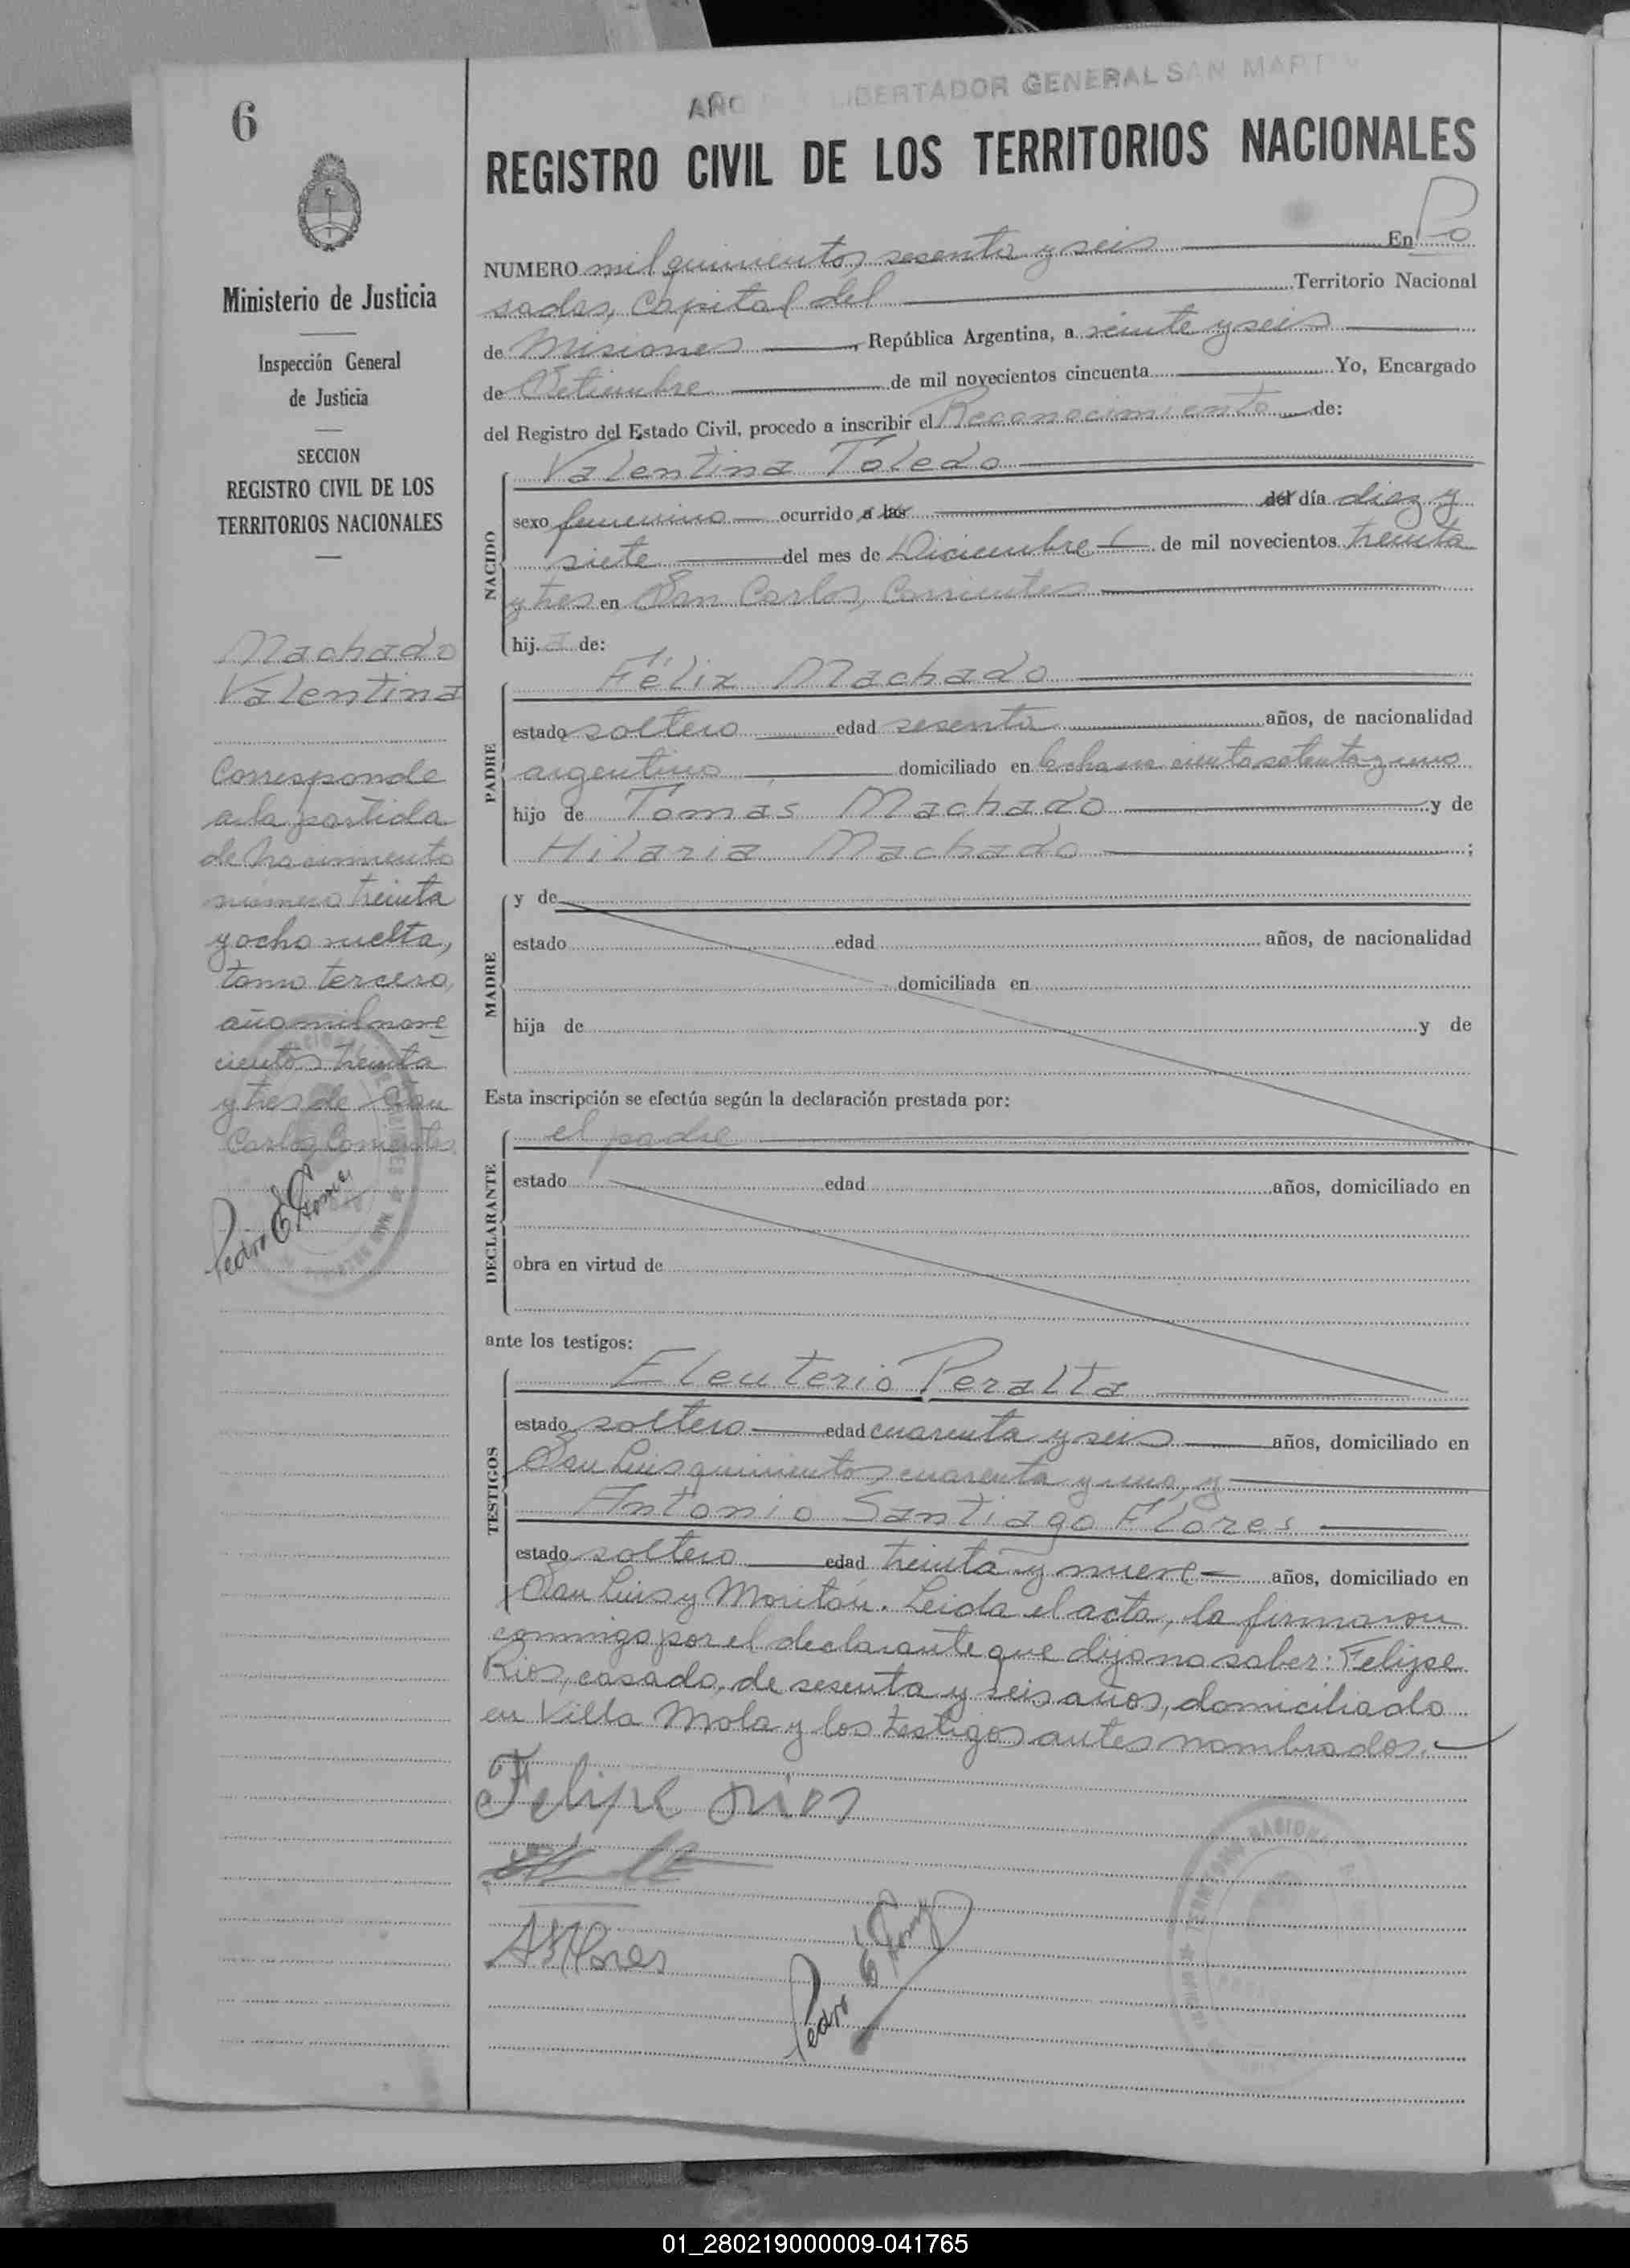 AÑO LIBERTADOR GENERAL SAN MARTIN
6
REGISTRO CIVIL DE LOS TERRITORIOS NACIONALES
Ministerio de Justicia
Inspección General
de Justicia
SECCION
REGISTRO CIVIL DE LOS
TERRITORIOS NACIONALES
Machado
Valentina
Corresponde
a la partida
de nacimiento
número treinta
y ocho vuelta,
tomo tercero,
año mil nove
cientos treinta
y tres de San
Carlos Corrientes
Pedro E Gomez
NUMERO mil quinientos sesenta y seis En Po
sadas, Capital del Territorio Nacional
de Misiones, República Argentina, a veinte y seis
de Setiembre de mil novecientos cincuenta Yo, Encargado
del Registro del Estado Civil, procedo a inscribir el Reconocimiento de:
NACIDO
Valentina Toledo
sexo femenino ocurrido a las del día diez y
siete del mes de Diciembre de mil novecientos treinta
y tres en San Carlos, Corrientes
hija de:
PADRE
Félix Machado
estado soltero edad sesenta años, de nacionalidad
argentino domiciliado en la chacra ciento setenta y uno
hijo de Tomás Machado y de
Hilaria Machado ;
MADRE
y de
estado edad años, de nacionalidad
domiciliada en
hija de y de
Esta inscripción se efectúa según la declaración prestada por:
DECLARANTE
el padre
estado edad años, domiciliado en
obra en virtud de
ante los testigos:
TESTIGOS
Eleuterio Peralta
estado soltero edad cuarenta y seis años, domiciliado en
San Luis quinientos cuarenta y uno, y
Antonio Santiago Flores
estado soltero edad treinta y nueve años, domiciliado en
San Luis y Moritán. Leida el acta, la firmaron
conmigo por el declarante que dijo no saber: Felipe
Rios, casado, de sesenta y seis años, domiciliado
en Villa Mola y los testigos antes nombrados.
Felipe rios
ASFlores
Pedro E Gomez
01_280219000009-041765